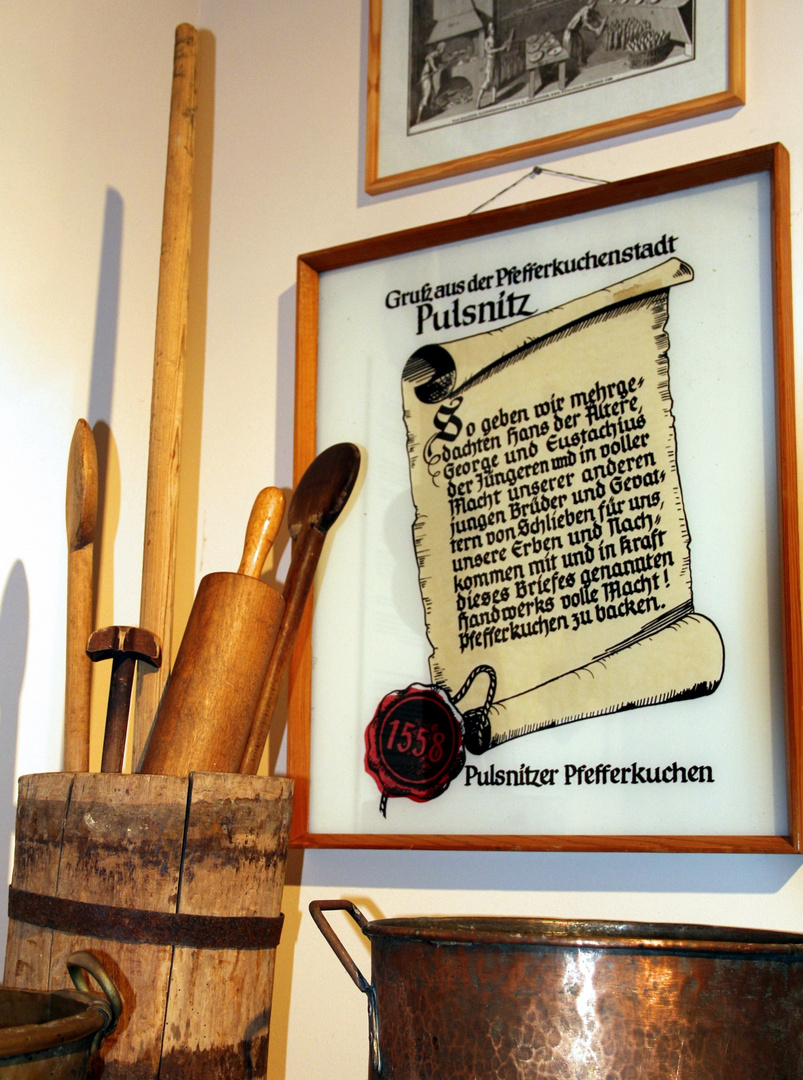 Gruß aus der Pfefferkuchenstadt
Pulsnitz
So geben wir mehrge⸗
dachten Hans der Ältere,
George und Eustachius
der Jüngeren und in voller
Macht unserer anderen
jungen Brüder und Gevat⸗
tern von Schlieben für uns,
unsere Erben und Nach⸗
kommen mit und in Kraft
dieses Briefes genannten
Handwerks volle Macht!
Pfefferkuchen zu backen.
1558
Pulsnitzer Pfefferkuchen